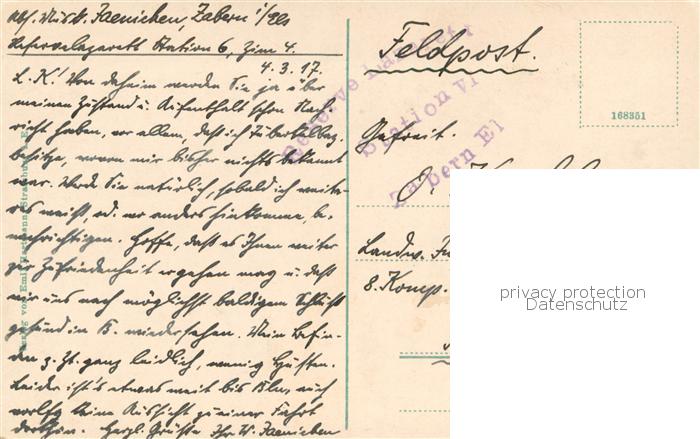 Abs. Musk. Jaenichen, Zabern i/Els
Reservelazarett Station 6, Zim 4.
4.3.17.
L. K! Von daheim werden Sie ja über
meinen Zustand u. Aufenthalt schon Nach-
richt haben, vor allem, daß ich Tuberkelbaz.
besitze, wovon mir bisher nichts bekannt
war. Werde Sie natürlich, sobald ich weite-
res weiß, od. wo anders hinkomme, be-
nachrichtigen. Hoffe, daß es Ihnen weiter
zur Zufriedenheit ergehen mag u. daß
wir uns nach möglichst baldigem Schluß
gesund in B. wiedersehen. Mein Befin-
den z. Zt. ganz leidlich, wenig Husten.
Leider ist's etwas weit bis Bln, auch
vorlfg keine Aussicht zu einer Fahrt
dorthin. Herzl. Grüße Ihr W. Jaenichen
Verlag von Emil Hartmann, Straßburg i. E.
Feldpost.
Reserve Lazarett
Station VI
Zabern El
168351
Gefreit.
O.
Landw.
8. Komp.
privacy protection
Datenschutz